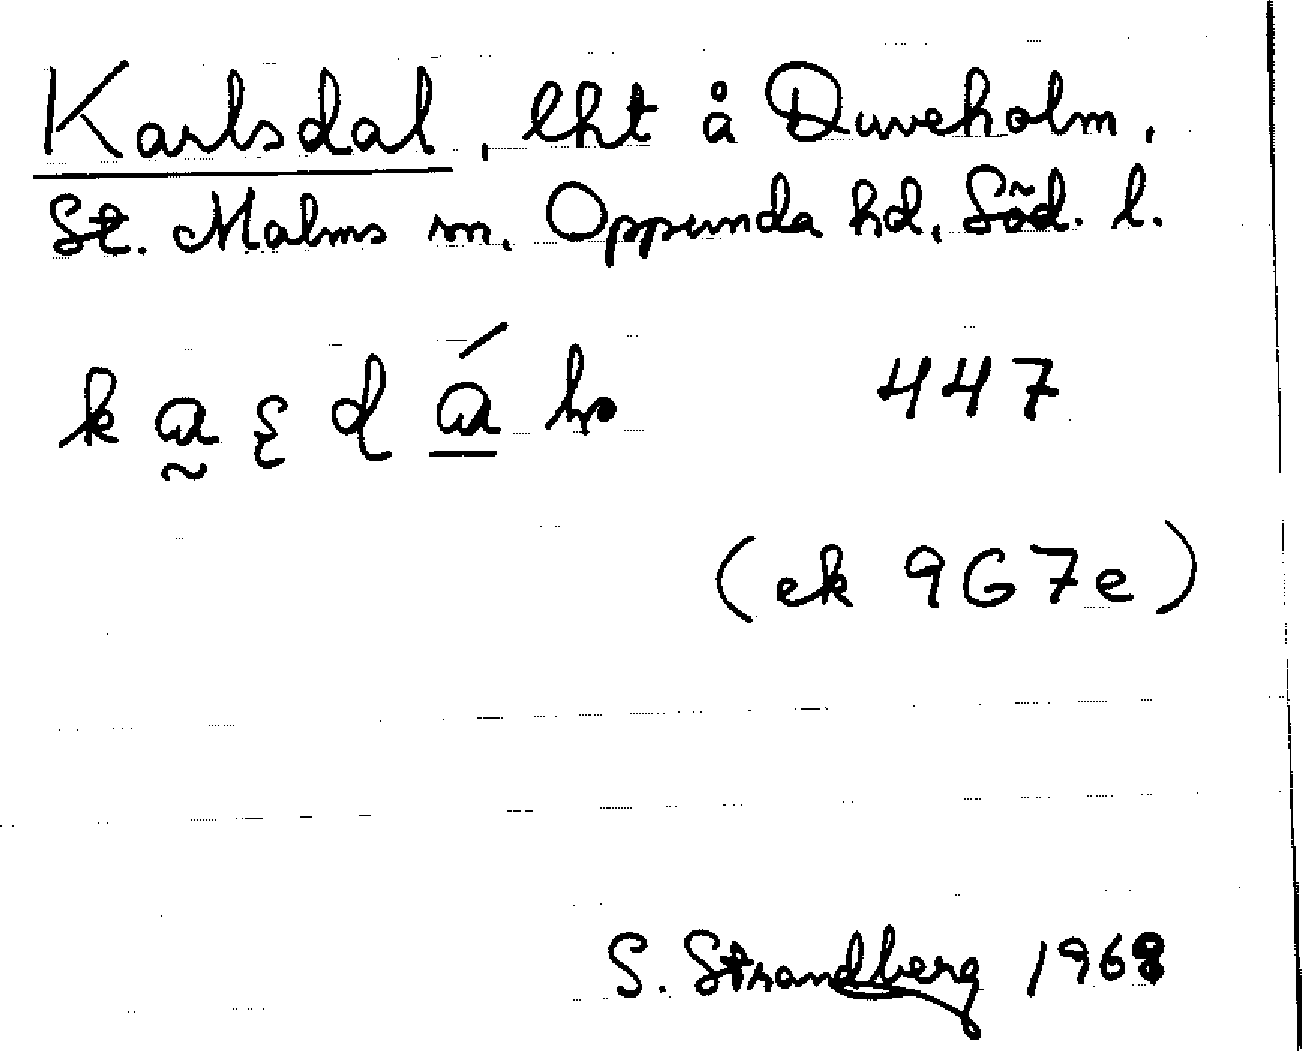 Karlsdal, lht å Duveholm,
St. Malms sn, Oppunda hd, Söd. l.
447
(ek 9G7e)
S. Strandberg 1968